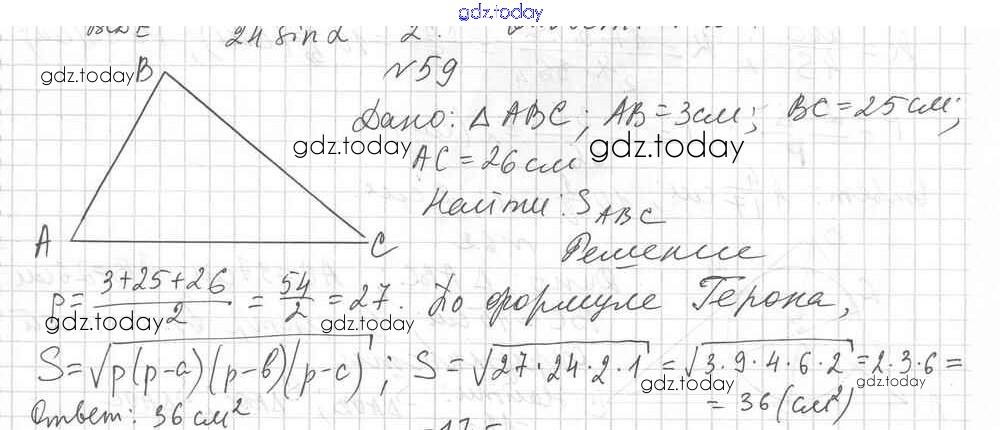 gdz.today
24 sin α 2.
gdz.today
B
№59
Дано: △ ABC; AB = 3см; BC = 25см;
gdz.today
gdz.today
AC = 26 см
Найти: S ABC
A
C
Решение
p = 3+25+26 / 2 = 54 / 2 = 27. По формуле Герона,
gdz.today
gdz.today
S = √p(p-a)(p-в)(p-c); S = √27·24·2·1 = √3·9·4·6·2 = 2·3·6 =
gdz.today
gdz.today
= 36 (см²)
Ответ: 36 см²